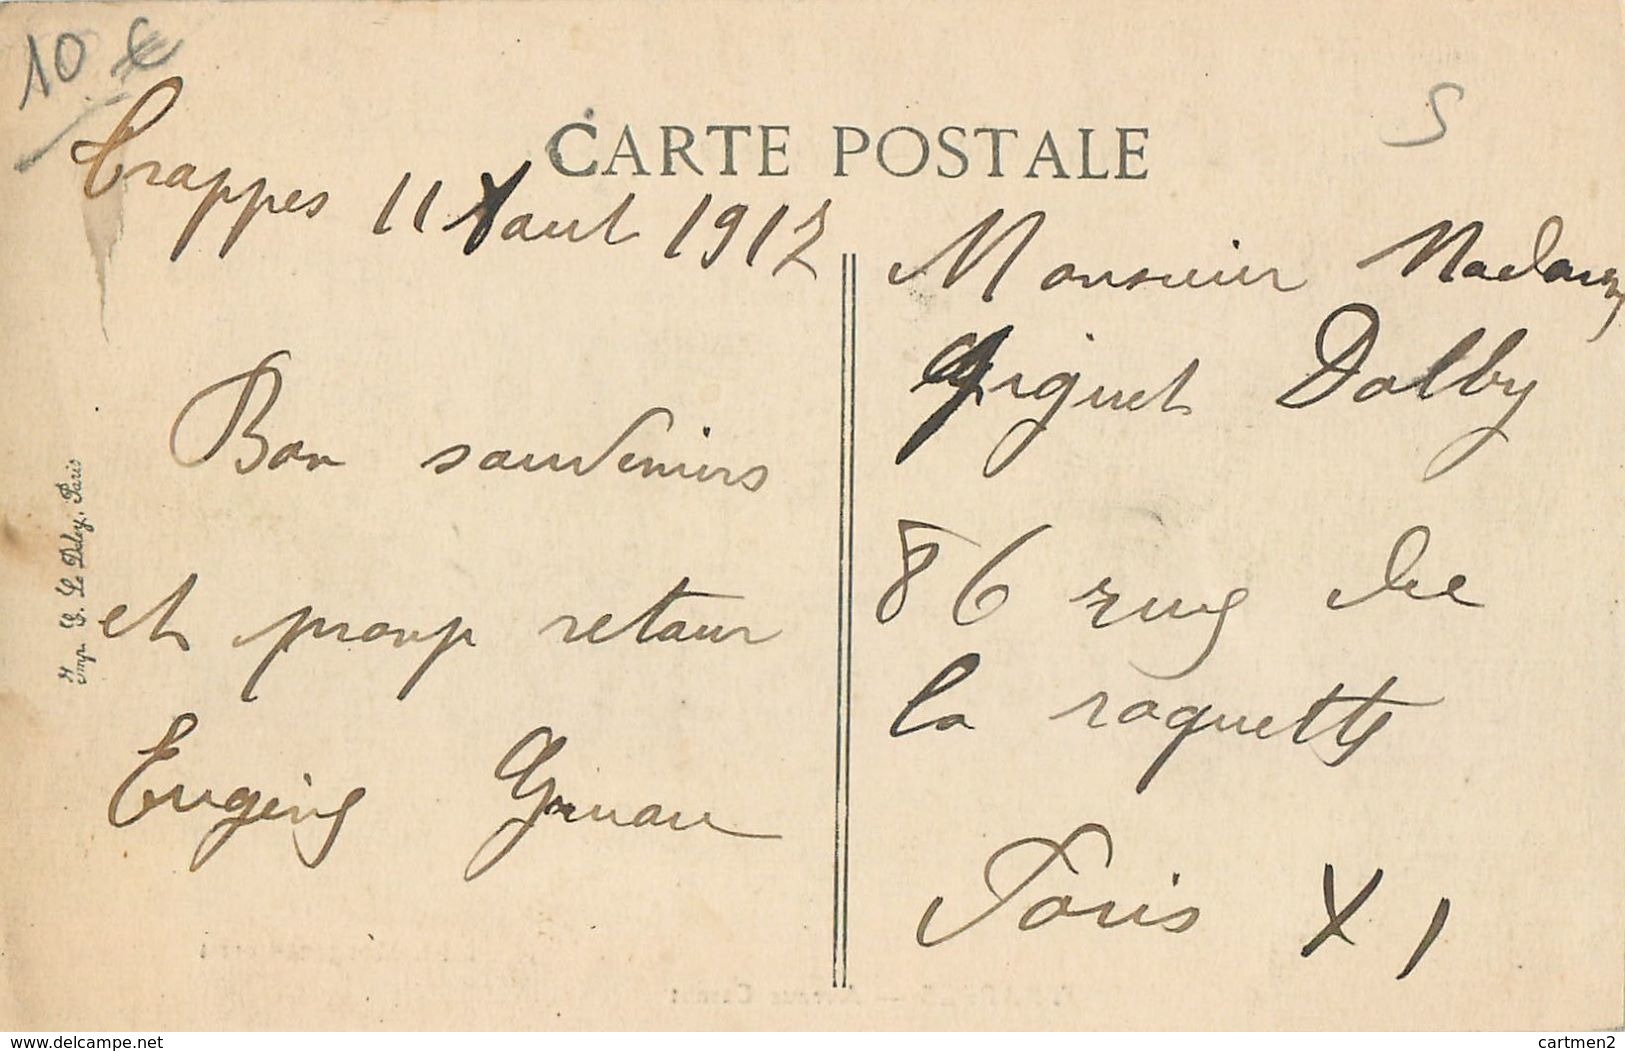 10 €
S
CARTE POSTALE
Trappes 11 aout 1912
Bon souvenirs
et promp retour
Eugène
Monsieur Madame
Dolby
86 rue de
la roquette
Paris XI
Imp. E. Le Deley, Paris
www.delcampe.net
cartmen2